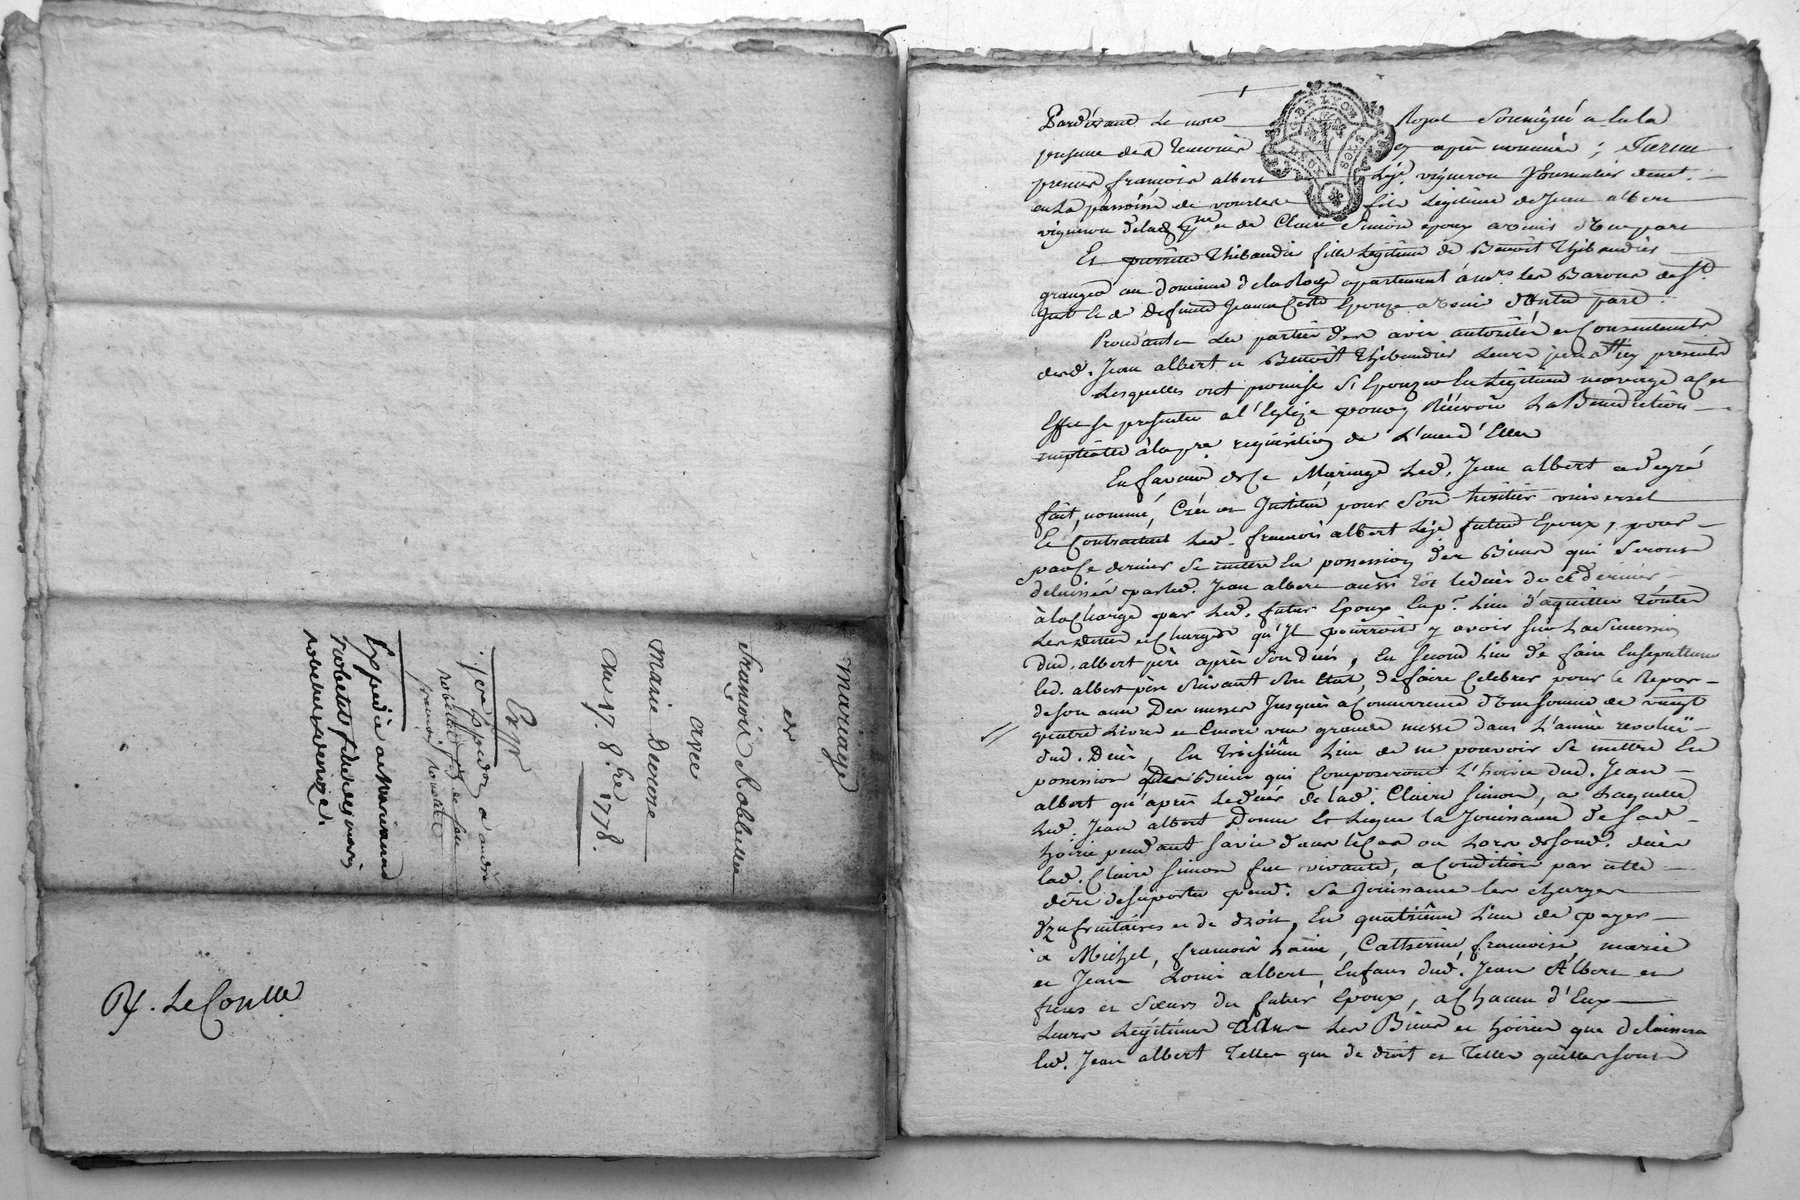 Mariage
de
François Robbellet
avec
Marie Decrore
du 17. 8.bre 1778.
Exp.
Rx. Le Conlle
DE LYON
DEUX SOLS
Pardevant Le no.re Royal Soussigné a la
presence des Temoins cy après nommés; Furent
presens françois albert vigneron Journalier demt.
en La paroisse de vourles fils Légitime de Jean albert
vigneron et de Claire Simon epoux avenir d'une part
Et pierrette Thibaudier fille Légitime de Benoît Thibaudier
granger au domaine de apartenant à mrs. les Barons de St.
Just Et de Deffunte Jeanne Epouze avenir d'autre part.
Procedantes Les parties des avis autorités et Consentements
desd. Jean albert et Benoît Thibaudier Leurs peres présents
Lesquelles ont promise S'Epouzer En Légitime mariage a Cet
Effet se presenter a l'Eglize pour y Recevoir La Benediction
nuptialle à la pre. requisition de L'une d'Elles
En faveur de Ce Mariage Led. Jean albert a de gré
fait, nommé, Créé et Institué pour Son héritier universel
Et Contractuel Led. françois albert futur Epoux, pour
par Ce dernier Se mettre En possession des Biens qui Seront
delaissés par led. Jean albert aussi tôt le decès de ce dernier
à la Charge par Led. futur Epoux En pr. Lieu d'aquitter toutes
Les dettes et Charges qu'Il pourroit y avoir Sur La Succession
dud. albert père après Son decès, En Second Lieu de faire Ensepulturer
led. albert père Suivant Son Etat, de faire Celebrer pour le Repos
de son ame Des messes Jusques a Concurrence d'une somme de vingt
quatre Livres et Encore une grande messe dans L'année revolüe
dud. Decès, En troisième Lieu de ne pouvoir Se mettre En
possession des Biens qui Composeront L'hoirie dud. Jean
albert qu'après Le decès de lad. Claire Simon, a Laquelle
Led. Jean albert Donne Et Legue la Jouissance de Sad.
hoirie pendant Sa vie dans le Cas ou Lors de Sond. decès
lad. Claire Simon fut vivante, a Condition par elle
de suporter pend.t Sa Jouissance les charges
Uzufruitaires et de droit, En quatrième Lieu de payer
à Michel, françois Laine, Catherine, françoise, marie
et Jean Louis albert Enfans dud. Jean Albert et
freres et Sœurs du futur Epoux, a Chacun d'Eux
Leurs Légitimes dans Les Biens et hoiries que delaissera
led. Jean albert Telles que de droit et Telles qu'elles Sont